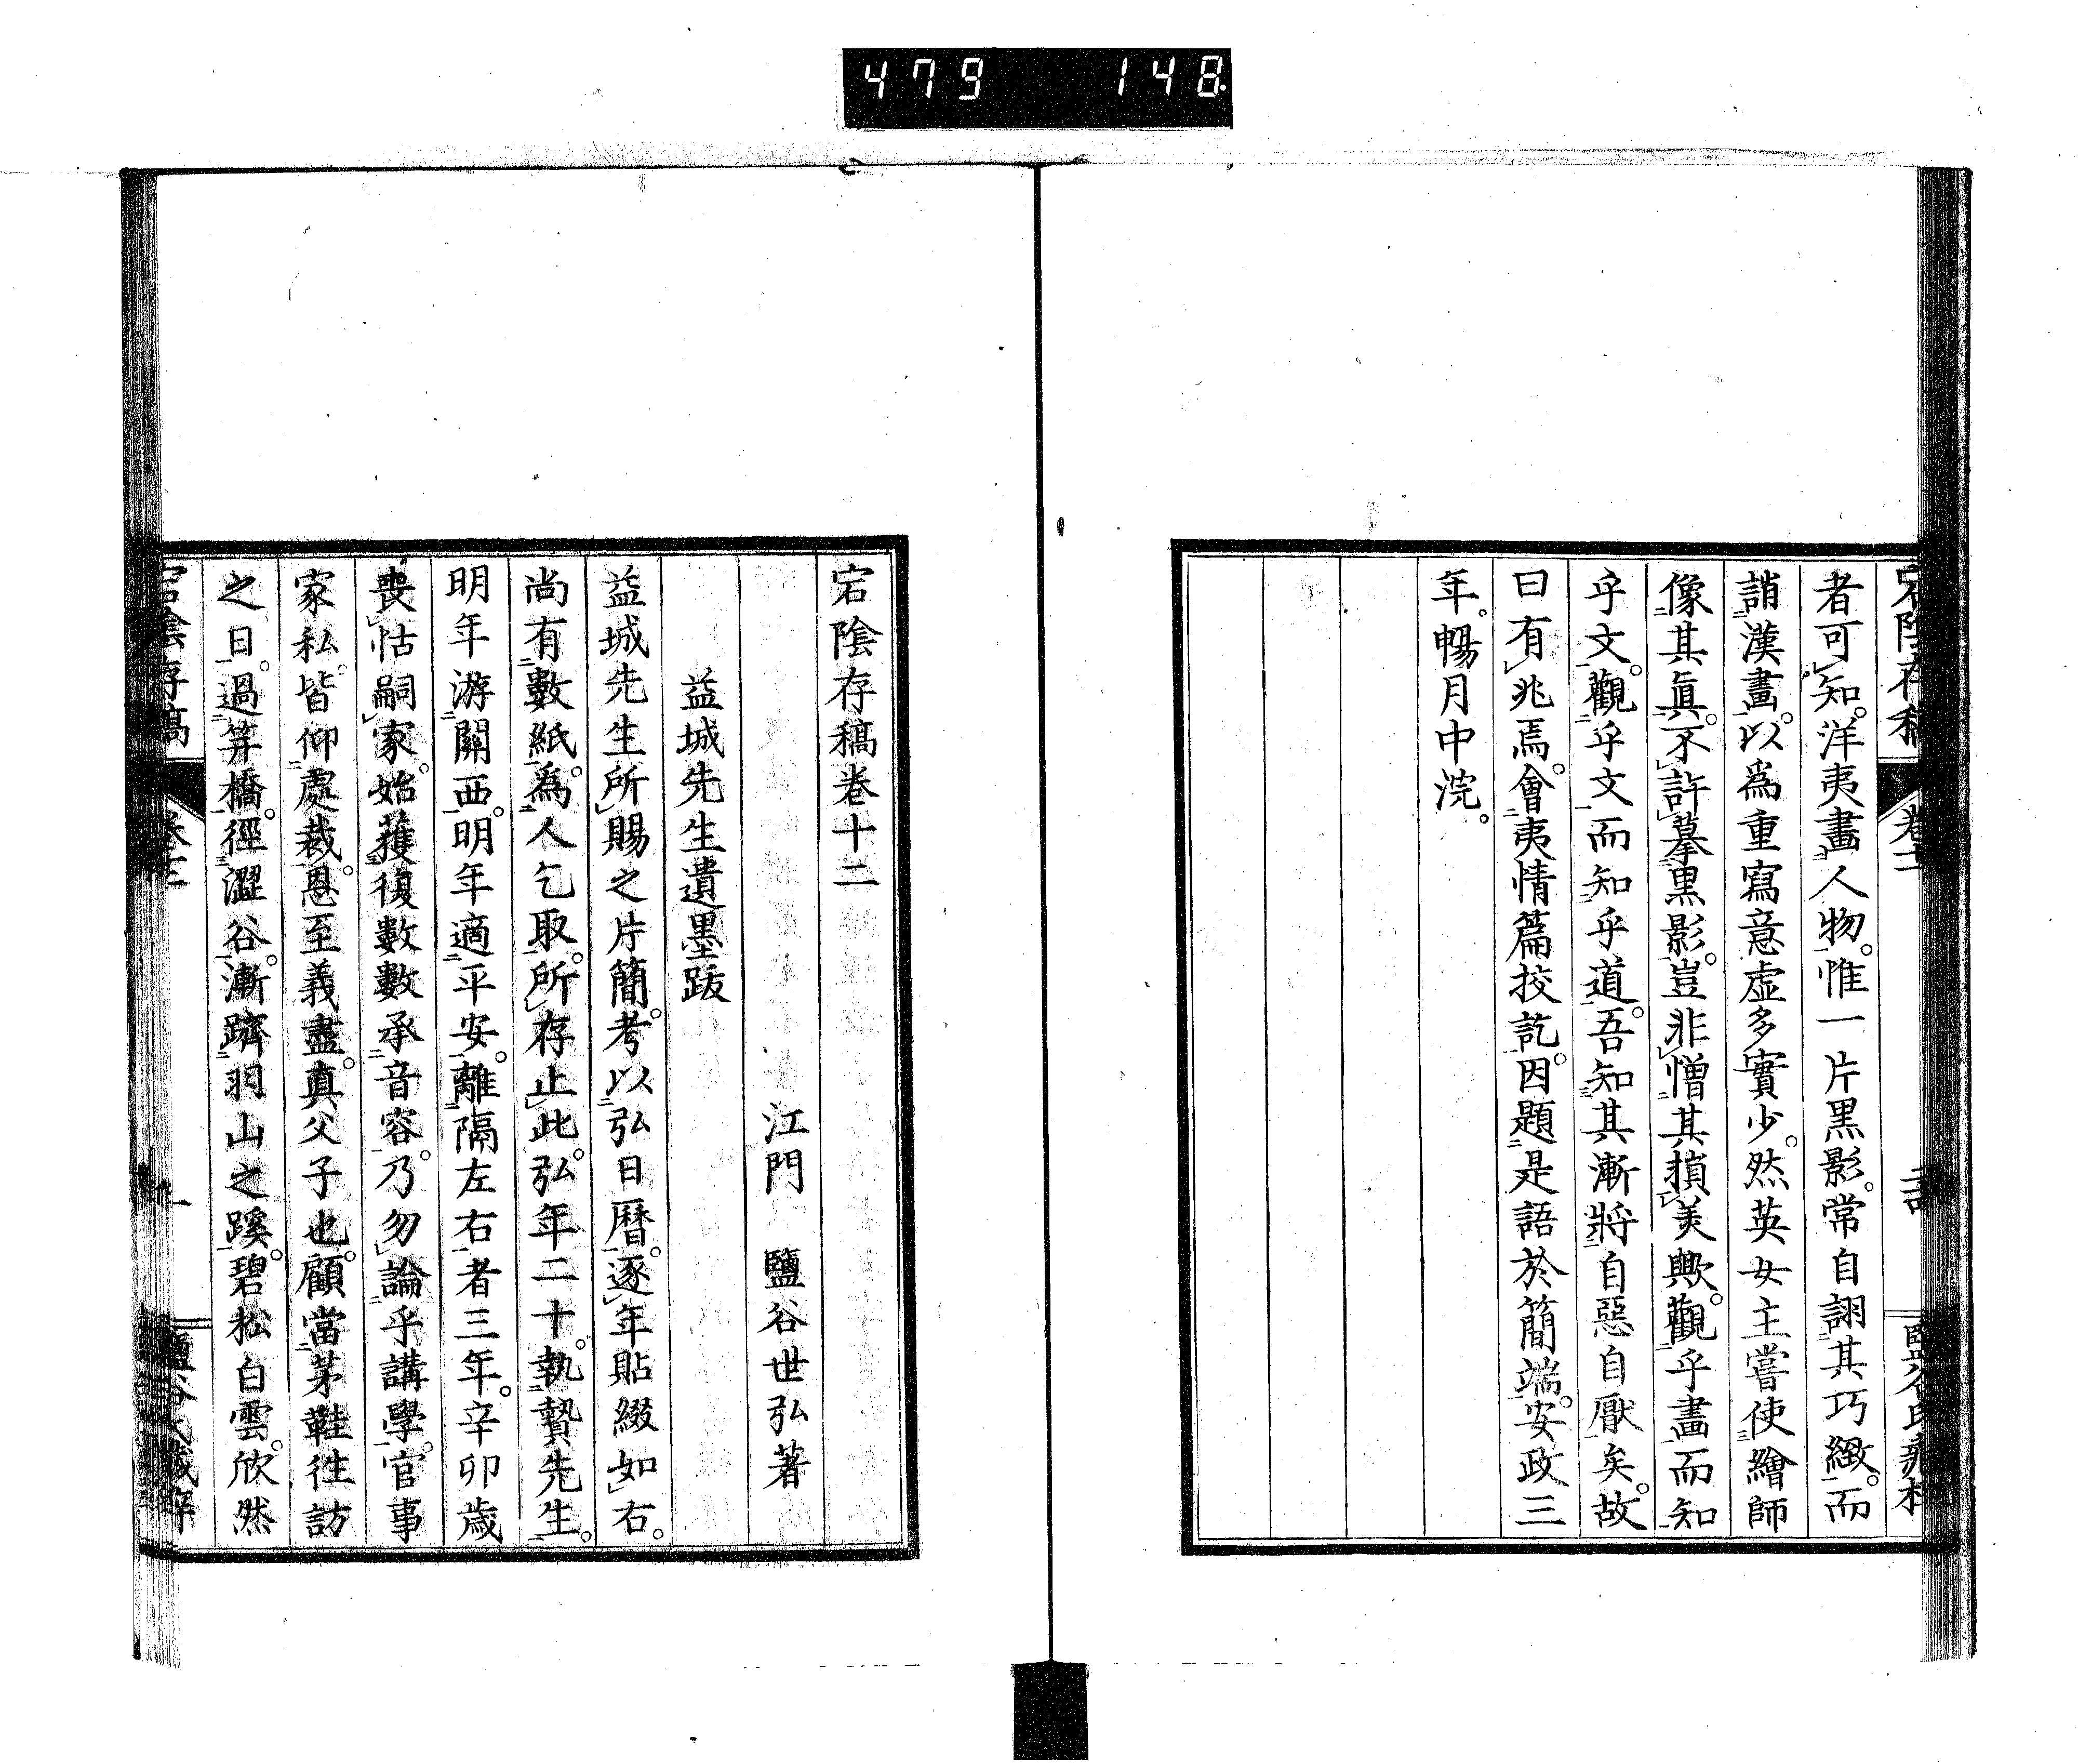 479 148
者可知。洋夷畫人物。惟一片黑影。常自詡其巧緻。而
誚漢畫。以爲重寫意虛多實少。然英女主嘗使繪師
像其眞。不許摹黑影。豈非憎其損美歟。觀乎畫而知
乎文。觀乎文而知乎道。吾知其漸將自惡自厭矣。故
曰有兆焉。會夷情篇挍訖。因題是語於簡端。安政三
年。暢月中浣。
宕陰存稿卷十二
江門 鹽谷世弘著
益城先生遺墨跋
益城先生所賜之片簡。考以弘日曆。逐年貼綴如右。
尚有數紙。爲人乞取。所存止此。弘年二十。執贄先生。
明年游關西。明年適平安。離隔左右者三年。辛卯歲
喪怙嗣家。始獲復數數承音容。乃勿論乎講學。官事
家私。皆仰處裁。恩至義盡。真父子也。顧當茅鞋往訪
之日。過笄橋。徑澀谷。漸躋羽山之蹊。碧松白雲。欣然
宕陰存稿 卷十二 一